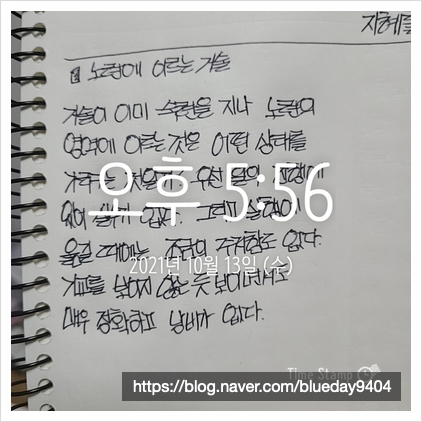 지혜를
노련에 이르는 기술
기술이 이미 숙련을 지나 노련의
영역에 이르는 것은 어떤 상태를
우선 일의 진행에
오후 5:56
있어 실수가 없다. 그리고 실행에
옮길 때에는 조금의 주저함도 없다.
2021년 10월 13일 (수)
않는 듯 보이면서도
매우 정확하고 낭비가 없다.
Time Stamp
https://blog.naver.com/blueday9404